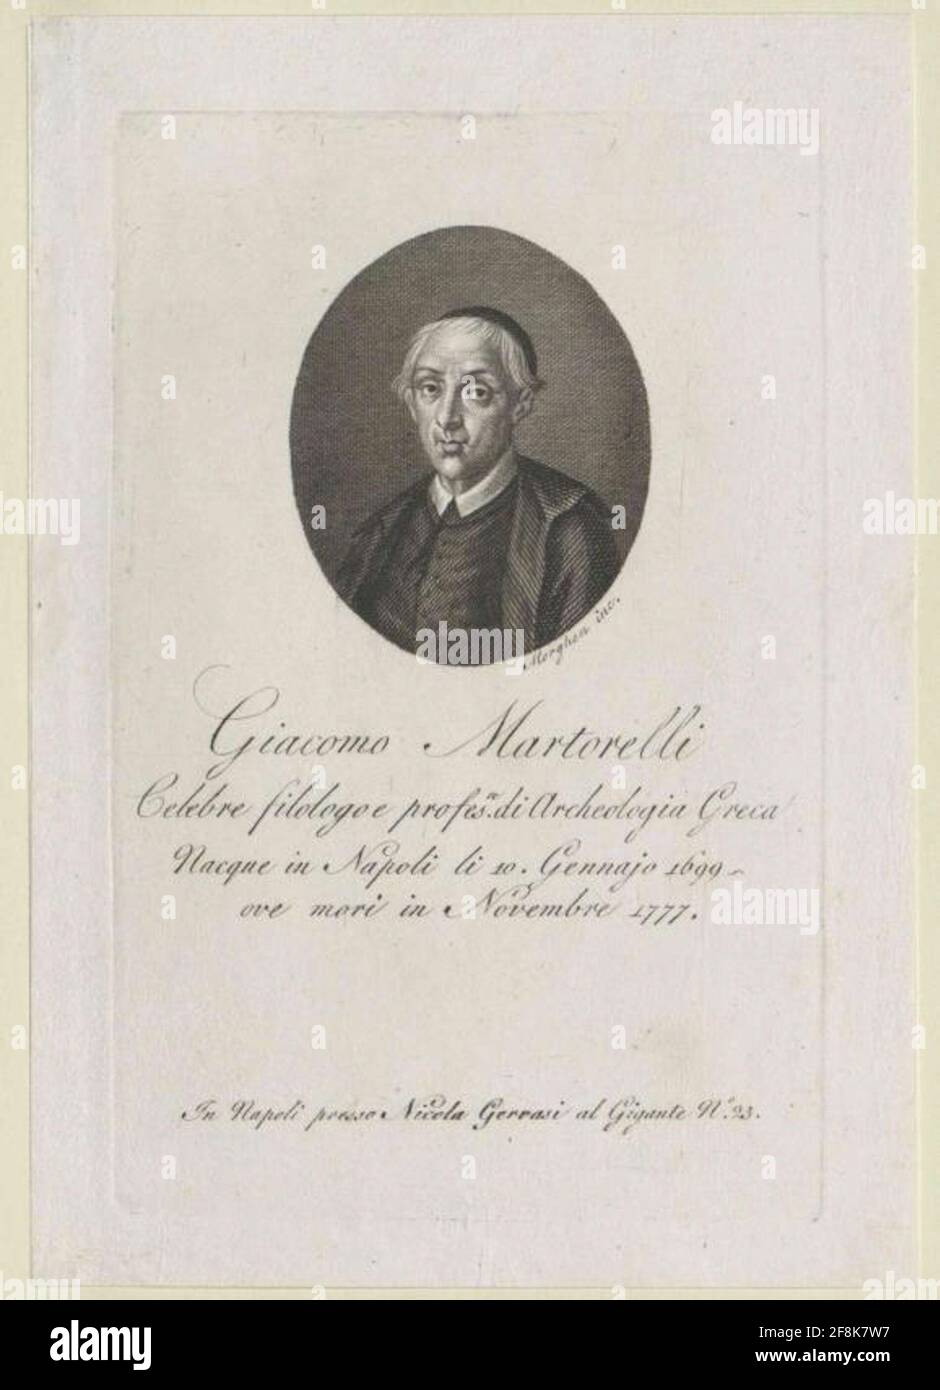 Morghen inc.
Giacomo Martorelli
Celebre filologo e profes.ʳ di Archeologia Greca
Nacque in Napoli li 10. Gennajo 1699
ove morì in Novembre 1777.
In Napoli presso Nicola Gervasi al Gigante N.º 23.
alamy
Image ID: 2F8K7W7
www.alamy.com